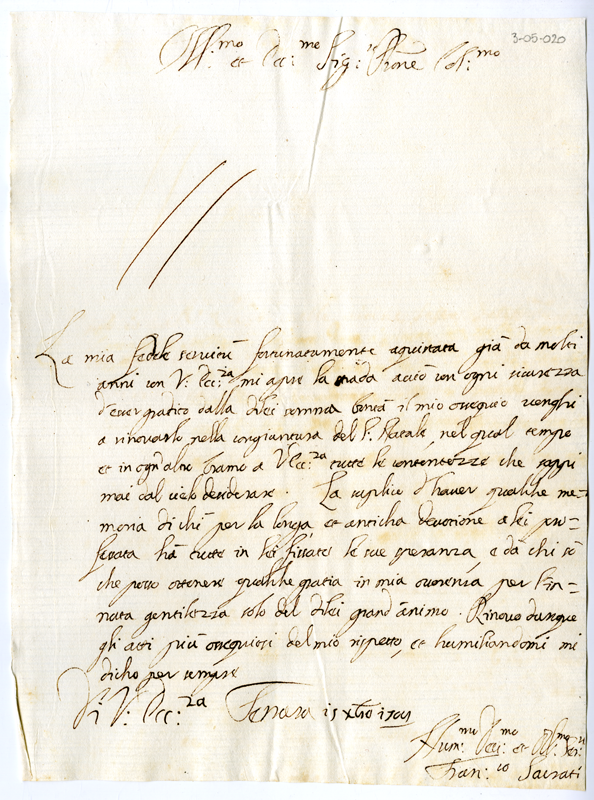 3-05-020
Ill:mo et Ecc:mo Sig: Prone Col:mo
La mia fedele servitù fortunatamente aquistata già da molti
anni con V: Ecc:za mi apre la strada acciò con ogni sicurezza
d'esser gradito dalla dilei somma bontà il mio ossequio venghi
a rinovarlo nella congiuntura del S: Natale, nel qual tempo
et in ogn'altro bramo a V Ecc:za tutte le contentezze che sappi
mai dal cielo desiderare. La suplico d'haver qualche me=
moria di chi per la longa, et anticha devotione a lei pro=
fessata hà tutte in lei fissate le sue speranza, e da chi sò
che posso ottenere qualche gratia in mia occorenza per l'in=
nata gentilezza solo del dilei grand'animo. Rinovo dunque
gli atti più ossequiosi del mio rispetto, et humiliandomi mi
dicho per sempre
Di V: Ecc:za Ferrara 15 Xbre 1701
Hum:mo Dev:mo et
Fran:co Sacrati